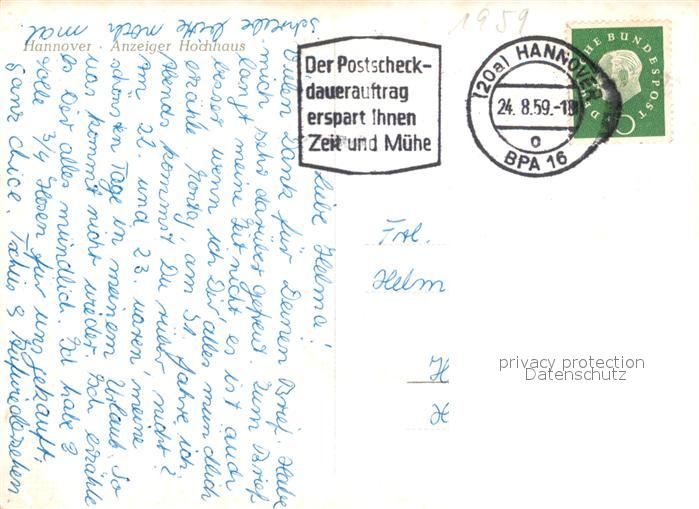 1959
Hannover · Anzeiger Hochhaus
Der Postscheck-
dauerauftrag
erspart Ihnen
Zeit und Mühe
(20a) HANNOVER
24. 8.59.-18
c
BPA 16
DEUTSCHE BUNDESPOST
10
Liebe Helma!
Vielen Dank für Deinen Brief. Habe
mich sehr darüber gefreut. Zum Brief
langt meine Zeit nicht, es ist auch
besser wenn ich Dir alles mündlich
erzähle. am 31 fahre ich
Abends kommst Du rüber nicht?
Am 22 und 23. waren meine
schönsten Tage in meinem Urlaub. So
was kommt nicht wieder. Ich erzähle
es Dir alles mündlich. Ich habe 2
tolle 3/4 Hosen für uns gekauft.
ganz chice. Tschüs & Aufwiedersehen.
schreibe bitte noch
mal
Frl.
Helm
H
H
privacy protection
Datenschutz